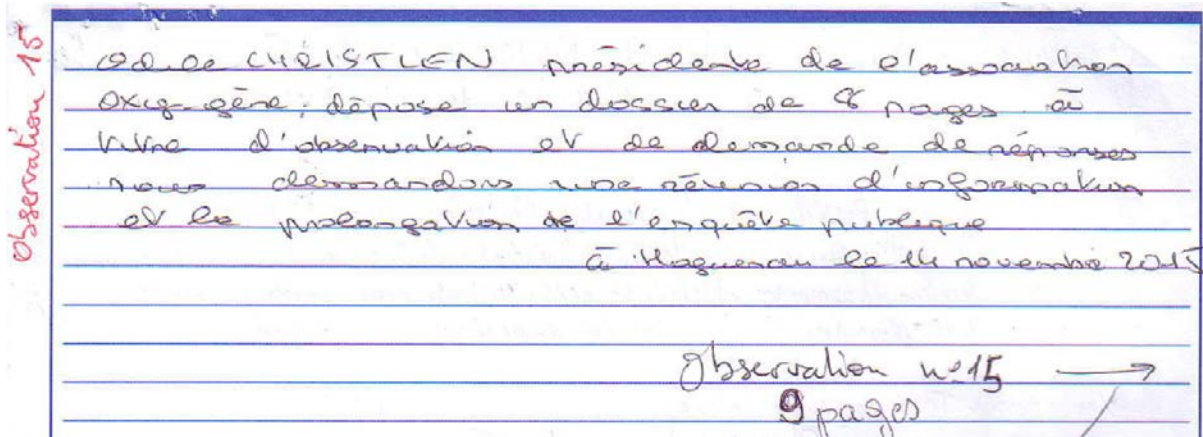 Observation 15
Odile CHRISTLEN présidente de l'association
Oxig-gène, dépose un dossier de 8 pages à
titre d'observation et de demande de réponses
nous demandons une réunion d'information
et la prolongation de l'enquête publique
à Haguenau le 14 novembre 2015
Observation n°15
9 pages